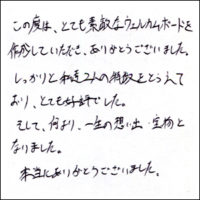 この度は、とても素敵なウェルカムボードを
作成していただき、ありがとうございました。
しっかりと私達2人の特徴をとらえて
おり、とても好評でした。
そして、何より、一生の想い出・宝物と
なりました。
本当にありがとうございました。